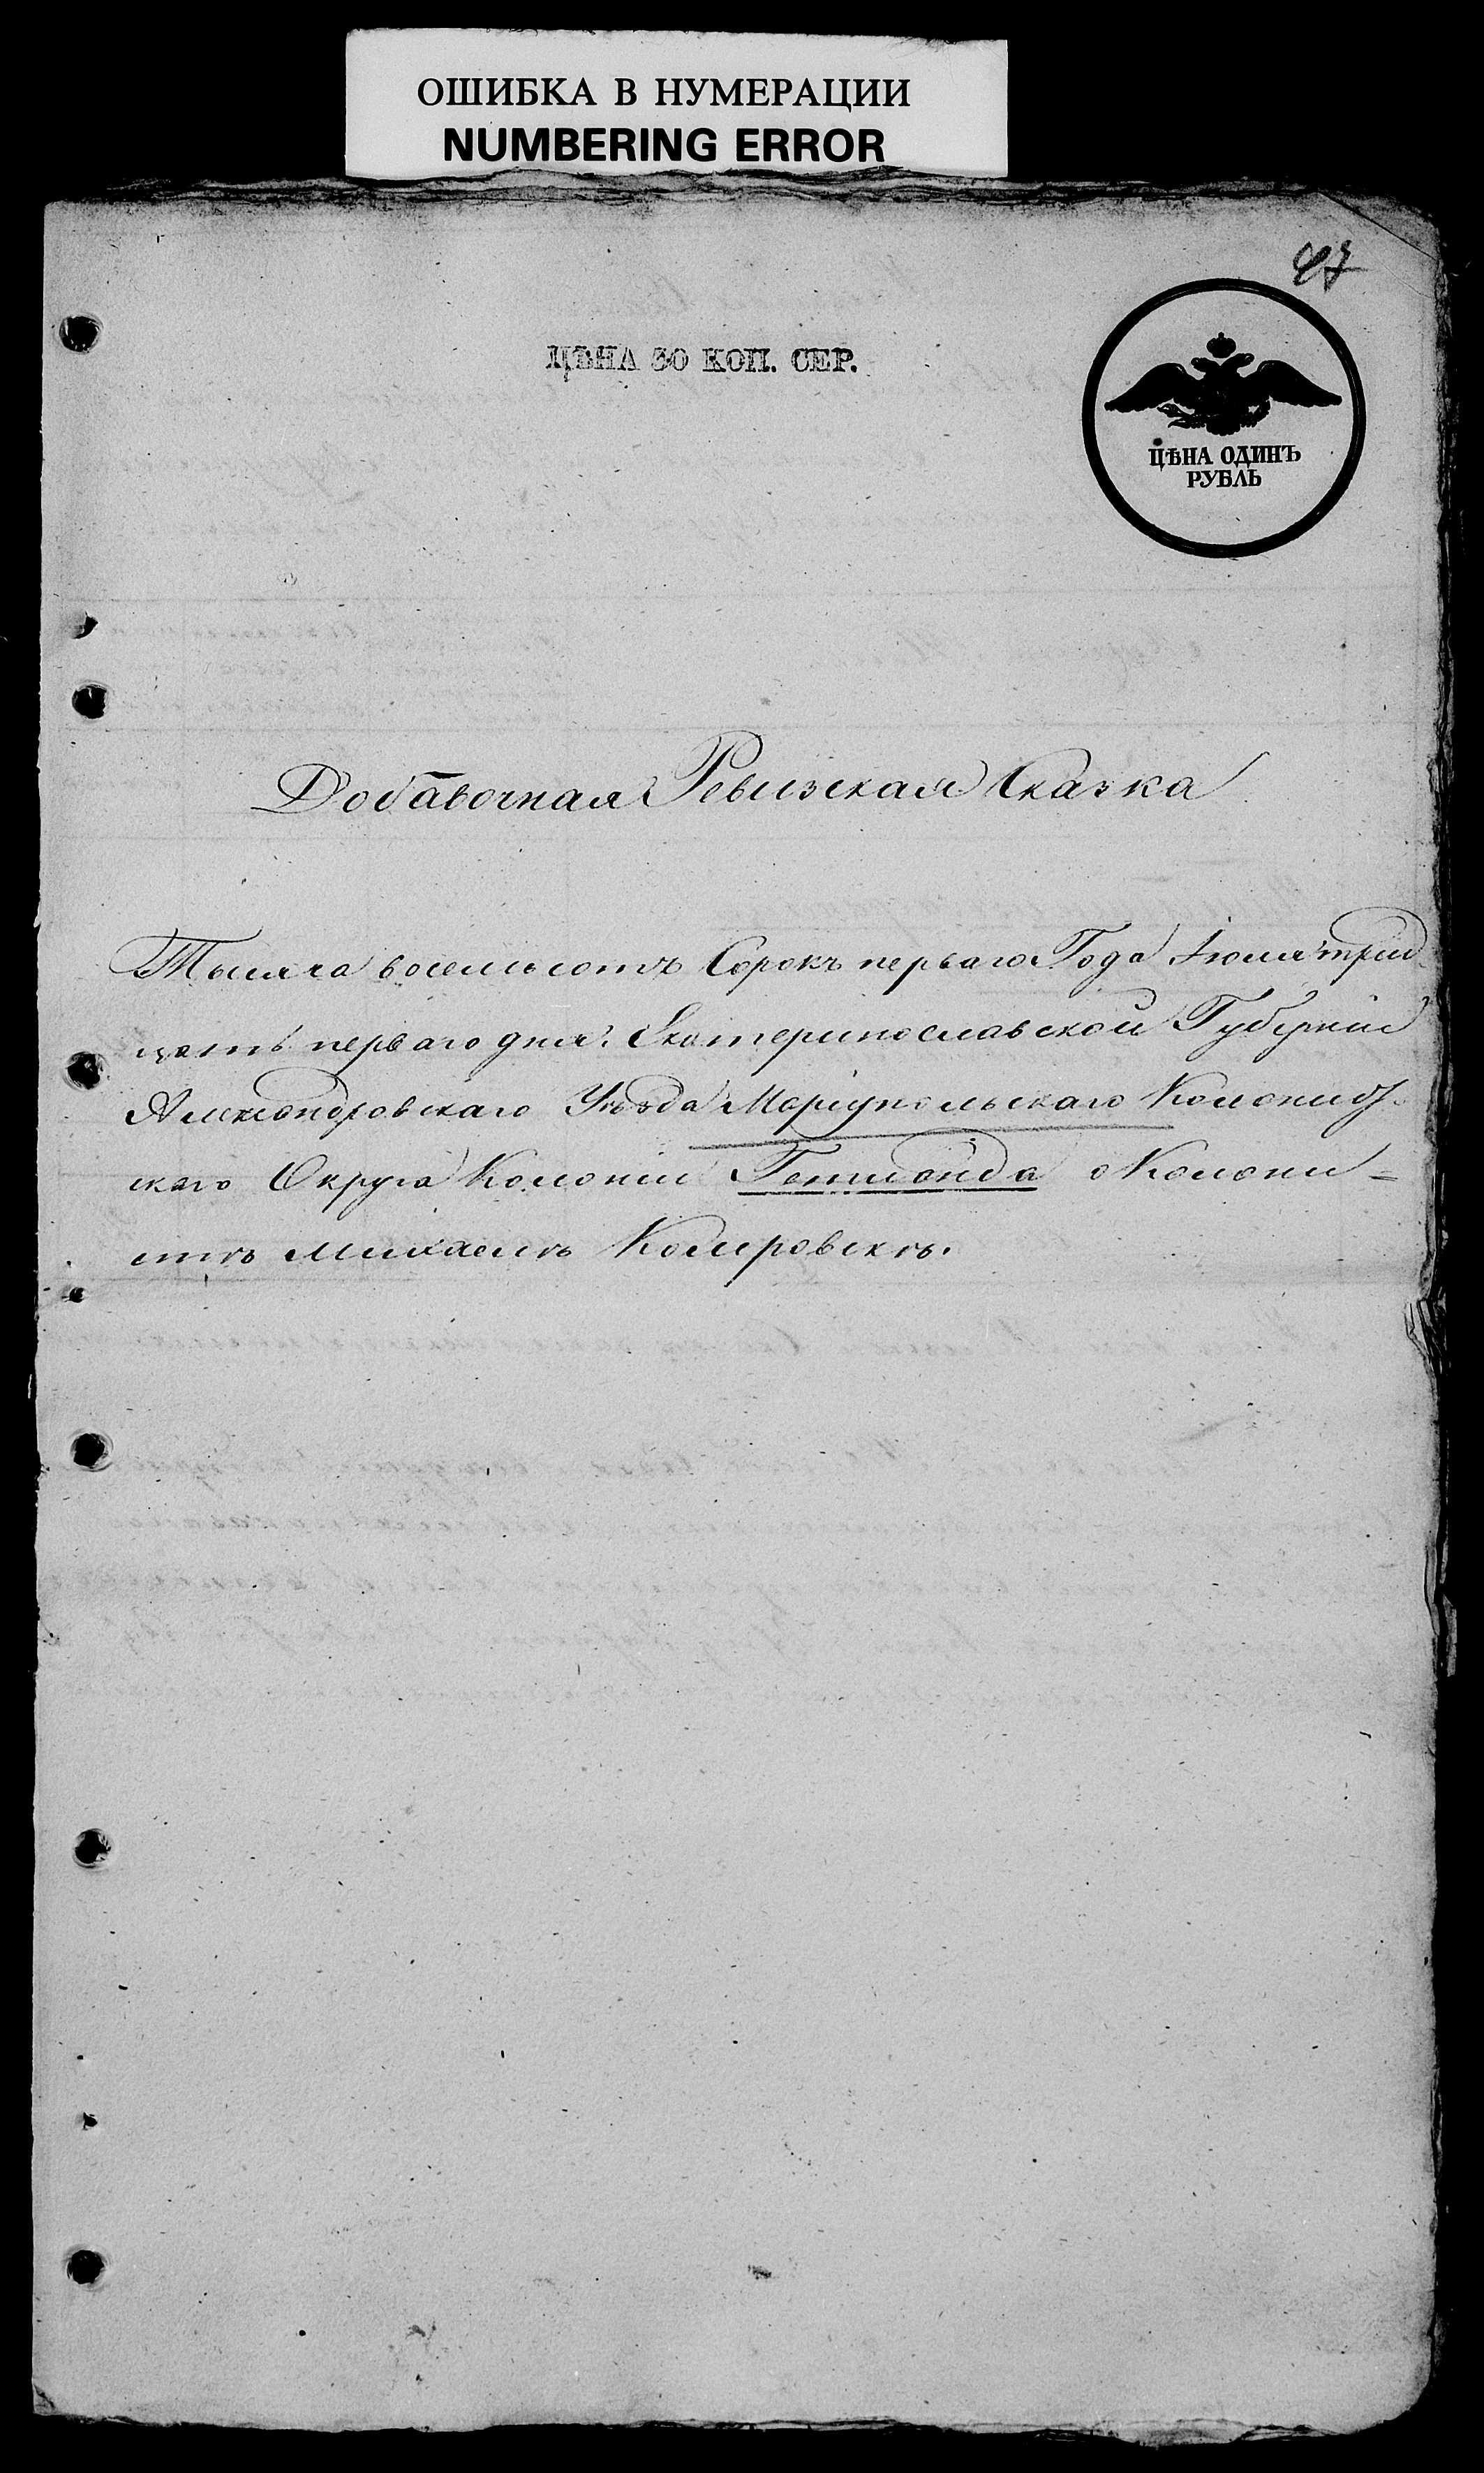 ОШИБКА В НУМЕРАЦИИ
NUMBERING ERROR
47
ЦѢНА 30 КОП. СЕР.
ЦѢНА ОДИНЪ
РУБЛЬ
Добавочная Ревизская Сказка
Тысяча восемьсотъ Сорокъ перваго Года Іюля трид
цать перваго дня. Екатеринославской Губерніи
Александровскаго Уѣзда Маріупольскаго Колонист
скаго Округа Колоніи Готланда о Колони=
стѣ Михаелѣ Комровскѣ.